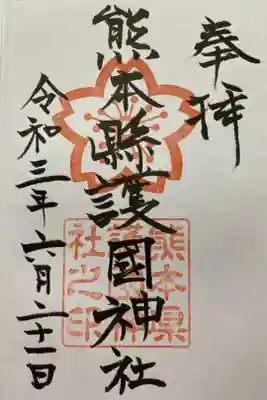 奉拝
熊本縣護國神社
熊本県
護國神
社之印
令和三年六月二十一日